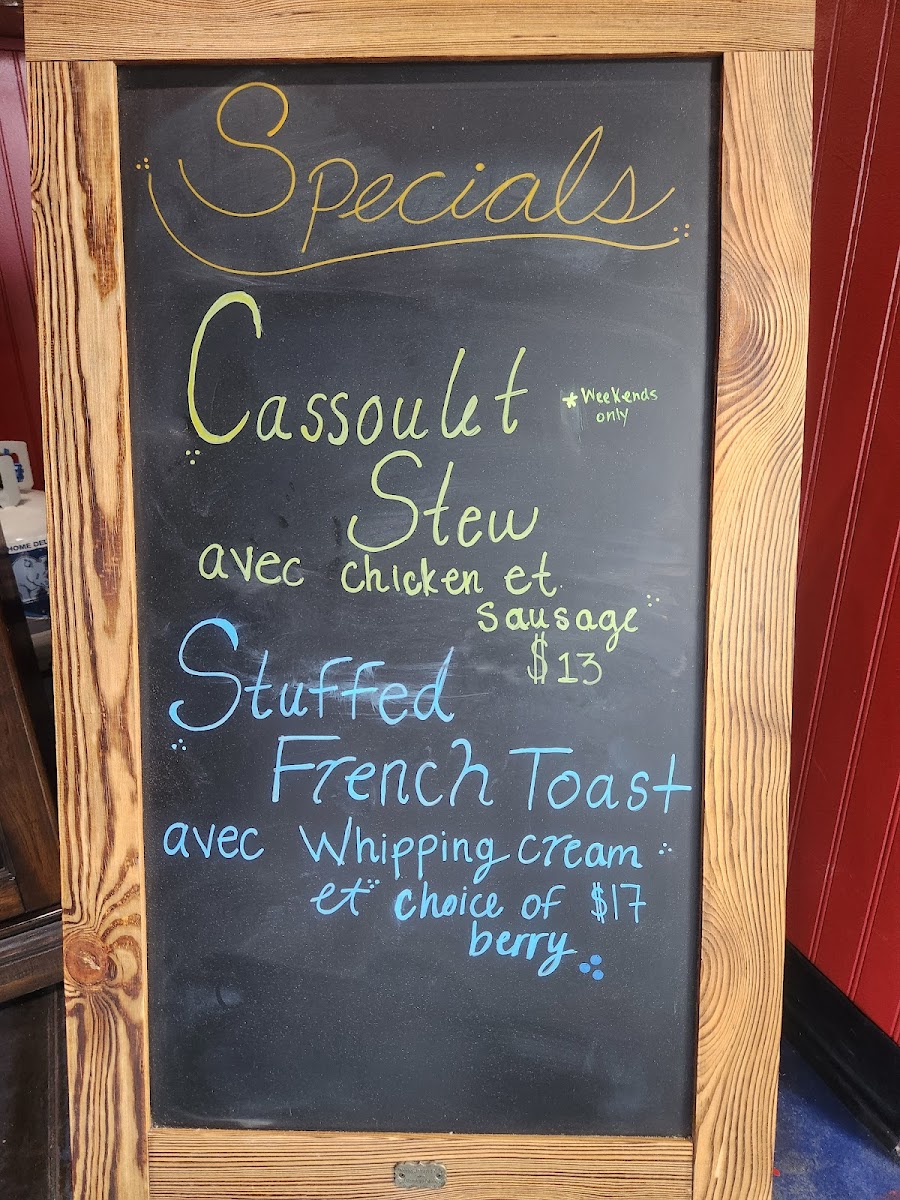 Specials
Cassoulet
*Weekends
only
Stew
avec chicken et
sausage
$13
Stuffed
French Toast
avec Whipping cream
et choice of $17
berry
HOME DEL